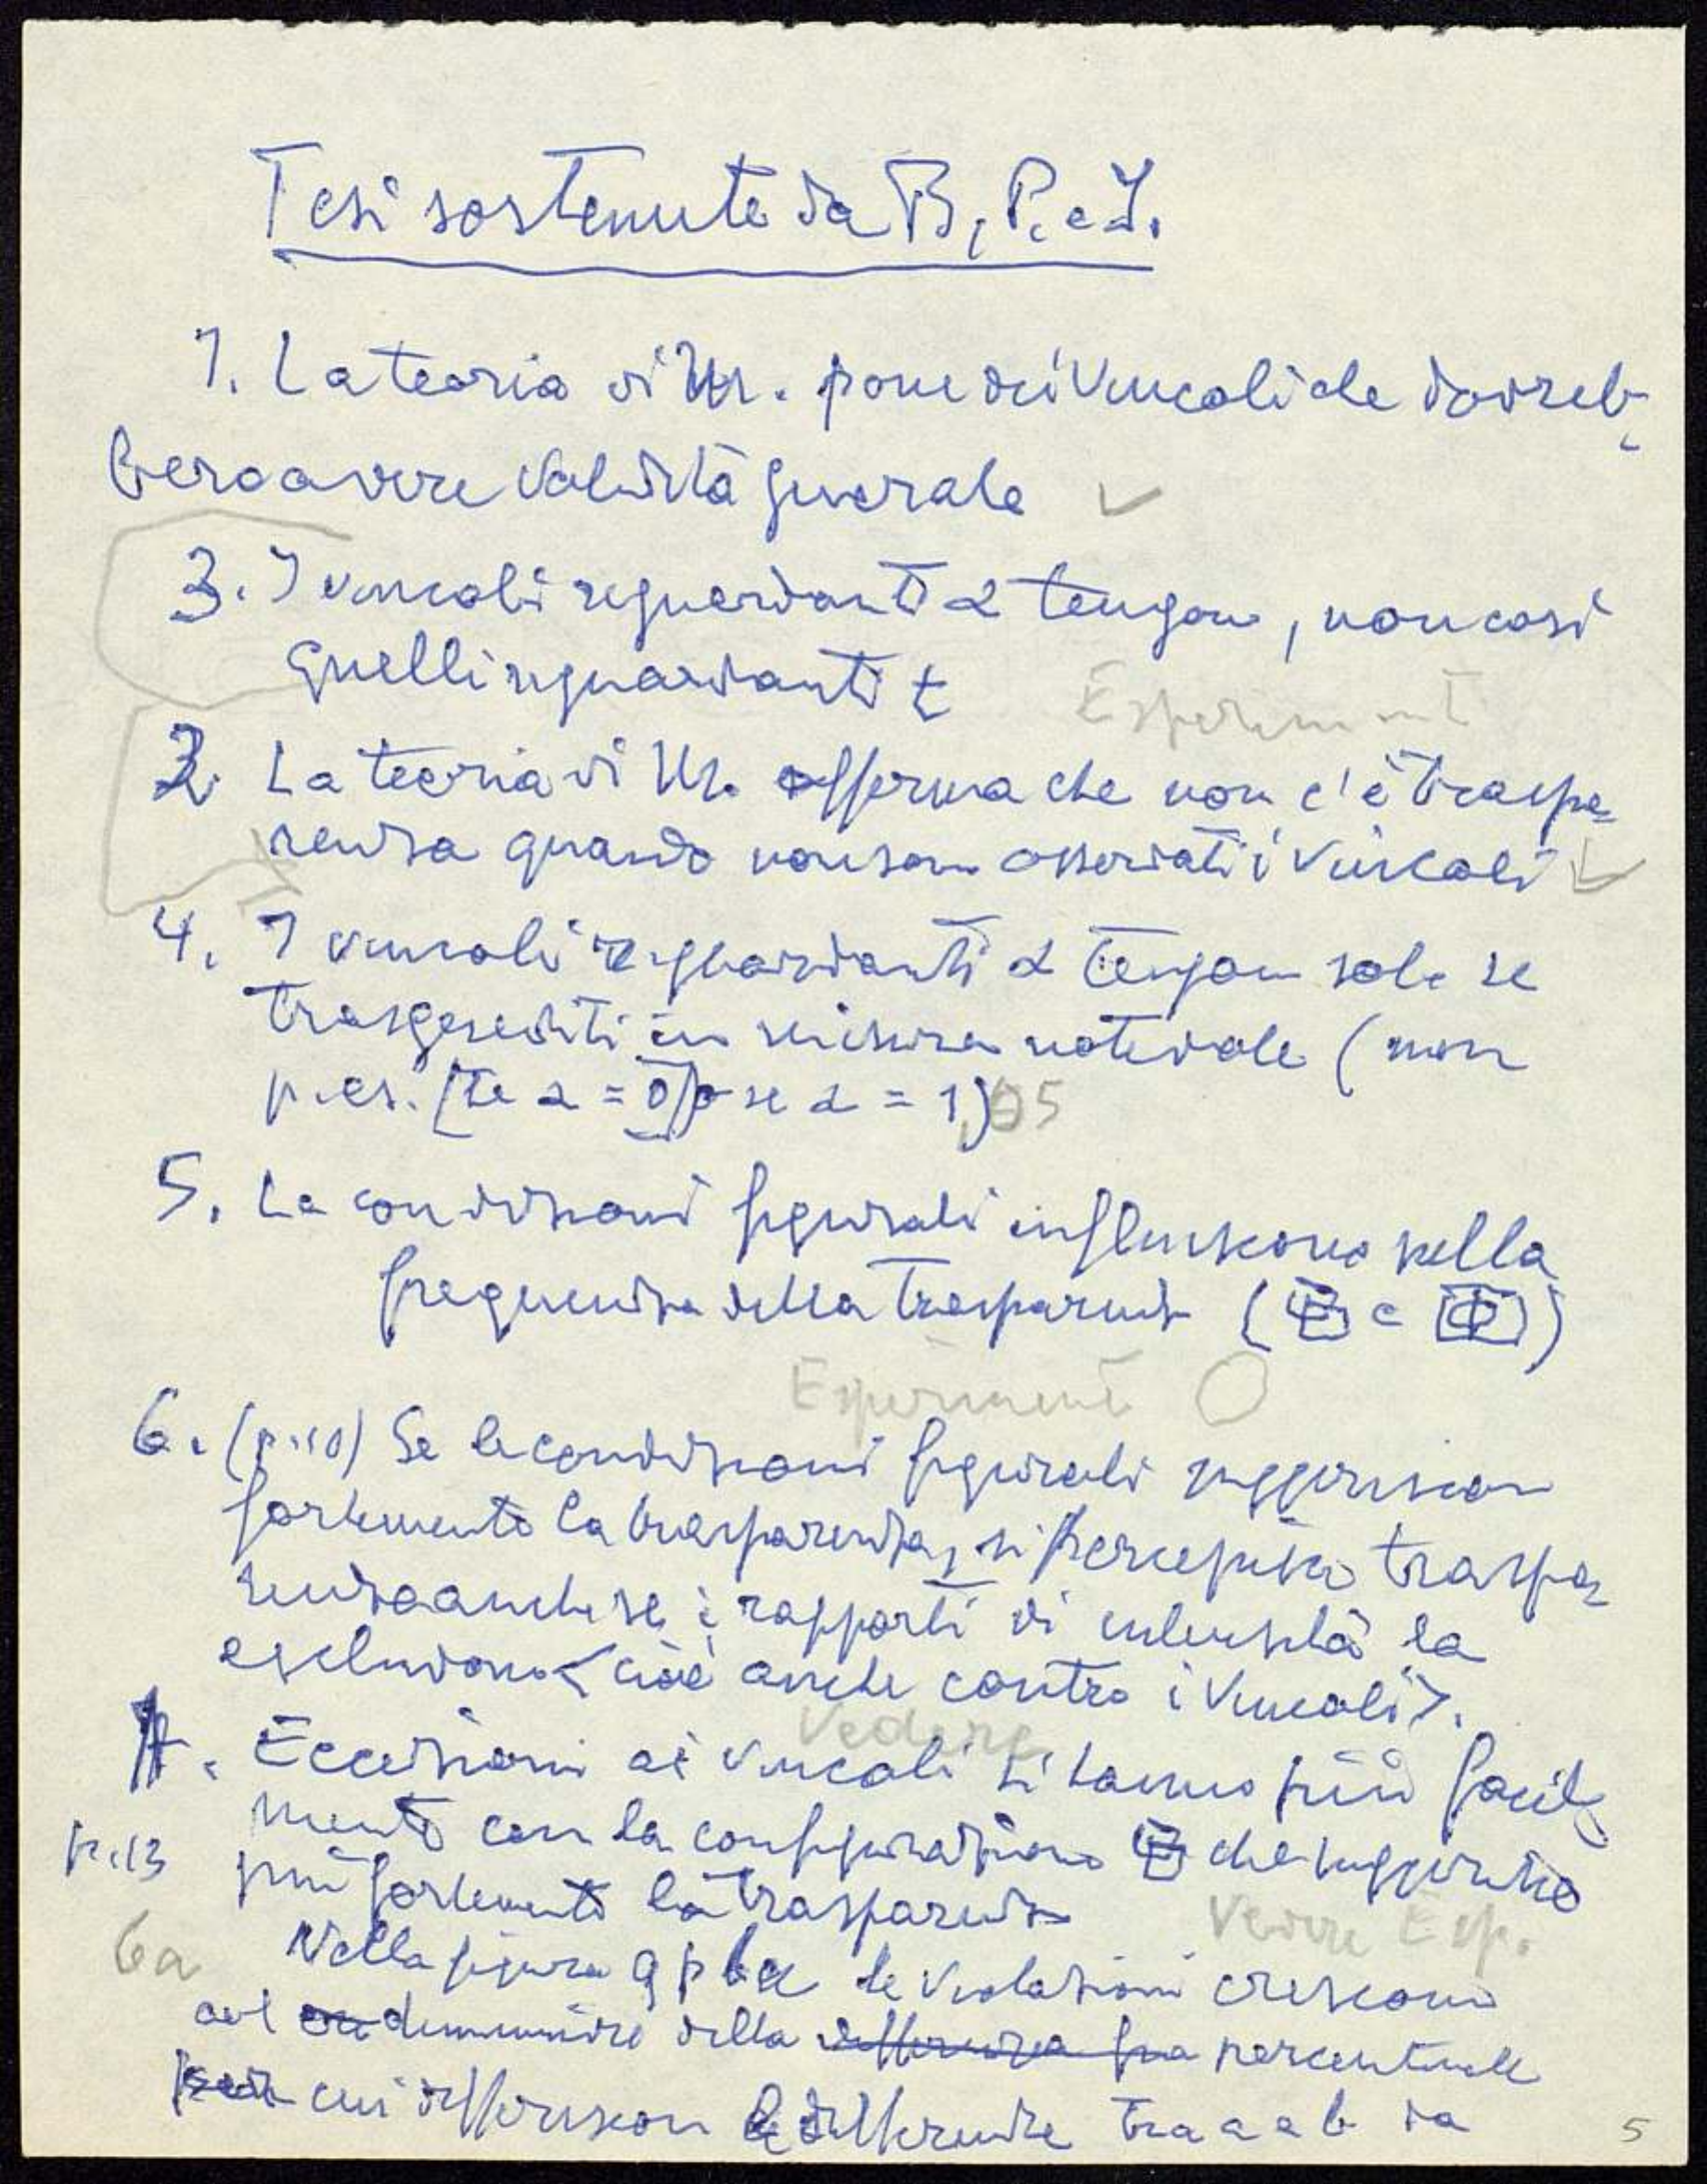 Tesi sostenute da B, P. e I.
1. La teoria di M. pone dei vincoli che dovreb-
bero avere validità generale ✓
3. I vincoli riguardanti α tengono, non così
quelli riguardanti t
Esperiment
2. La teoria di M. afferma che non c'è traspa-
renza quando non sono osservati i vincoli ✓
4. I vincoli riguardanti α tengono solo se
trasgrediti in misura notevole (non
p. es. [se α = 0] o se α = 1) 05
5. Le condizioni figurali influiscono sulla
frequenza della trasparenza ( e )
Esperimenti
6. (p. 10) Se le condizioni figurali suggeriscono
fortemente la trasparenza, si percepisce traspa-
renza anche se i rapporti di intensità la
escludono <cioè anche contro i vincoli>.
Vedere
7. Eccezioni ai vincoli si hanno più facil-
mente con la configurazione che suggerisce
p. 13 più fortemente la trasparenza
Vedere Esp.
6a Nella figura 9 le violazioni crescono
col diminuire della differenza fra percentuale
per cui differiscono le differenze tra a e b da
5